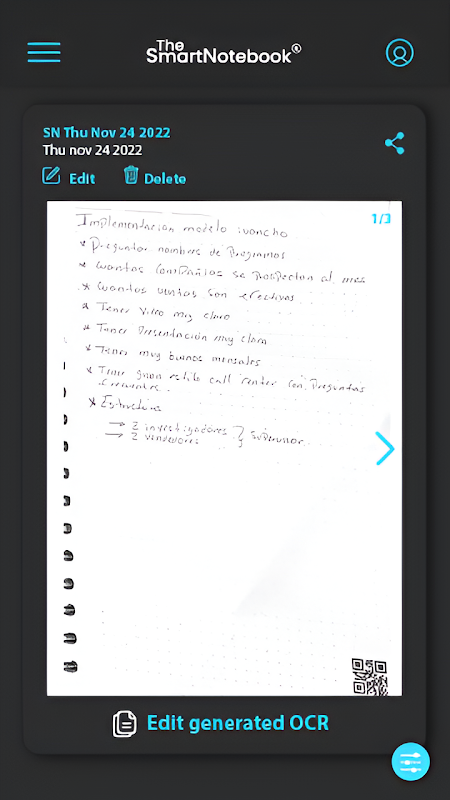 The
SmartNotebook®
SN Thu Nov 24 2022
Thu nov 24 2022
Edit
Delete
1/3
Implementacion modelo ivancho
* Preguntar nombres de Programas
* cuantas Compañias se prospectan al mes
* cuantas ventas son efectivas
* Tener video muy claro
* Tener Presentación muy clara
* Tener muy buenos mensajes
* Tener guon estilo call center con Preguntas
frecuentes.
* Estructura
→ 2 investigadores } supervisor
→ 2 vendedores
Edit generated OCR